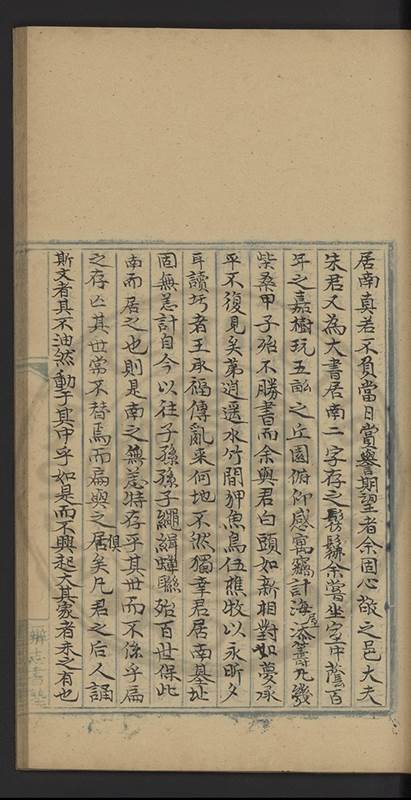 居南真若不負當日賞譽期望者余固心敬之邑大夫
朱君又為大書居南二字存之髣髴余嘗坐室中蔭百
年之嘉樹玩五畝之丘園俯仰感寓竊計海屋添籌凡幾
柴桑甲子殆不勝書而余與君白頭如新相對如夢承
平不復見矣第逍遥水竹間狎魚鳥伍樵牧以永昕夕
耳讀圬者王承福傳亂来何地不然獨幸君居南基址
固無恙計自今以往子孫孫子繩緝蟬聯殆百世保此
南而居之也則是南之無恙特存乎其世而不係乎扁
之存亡其世常不替焉而扁與之居俱矣凡君之后人誦
斯文者其不油然動于其中乎如是而不興起大其家者未之有也